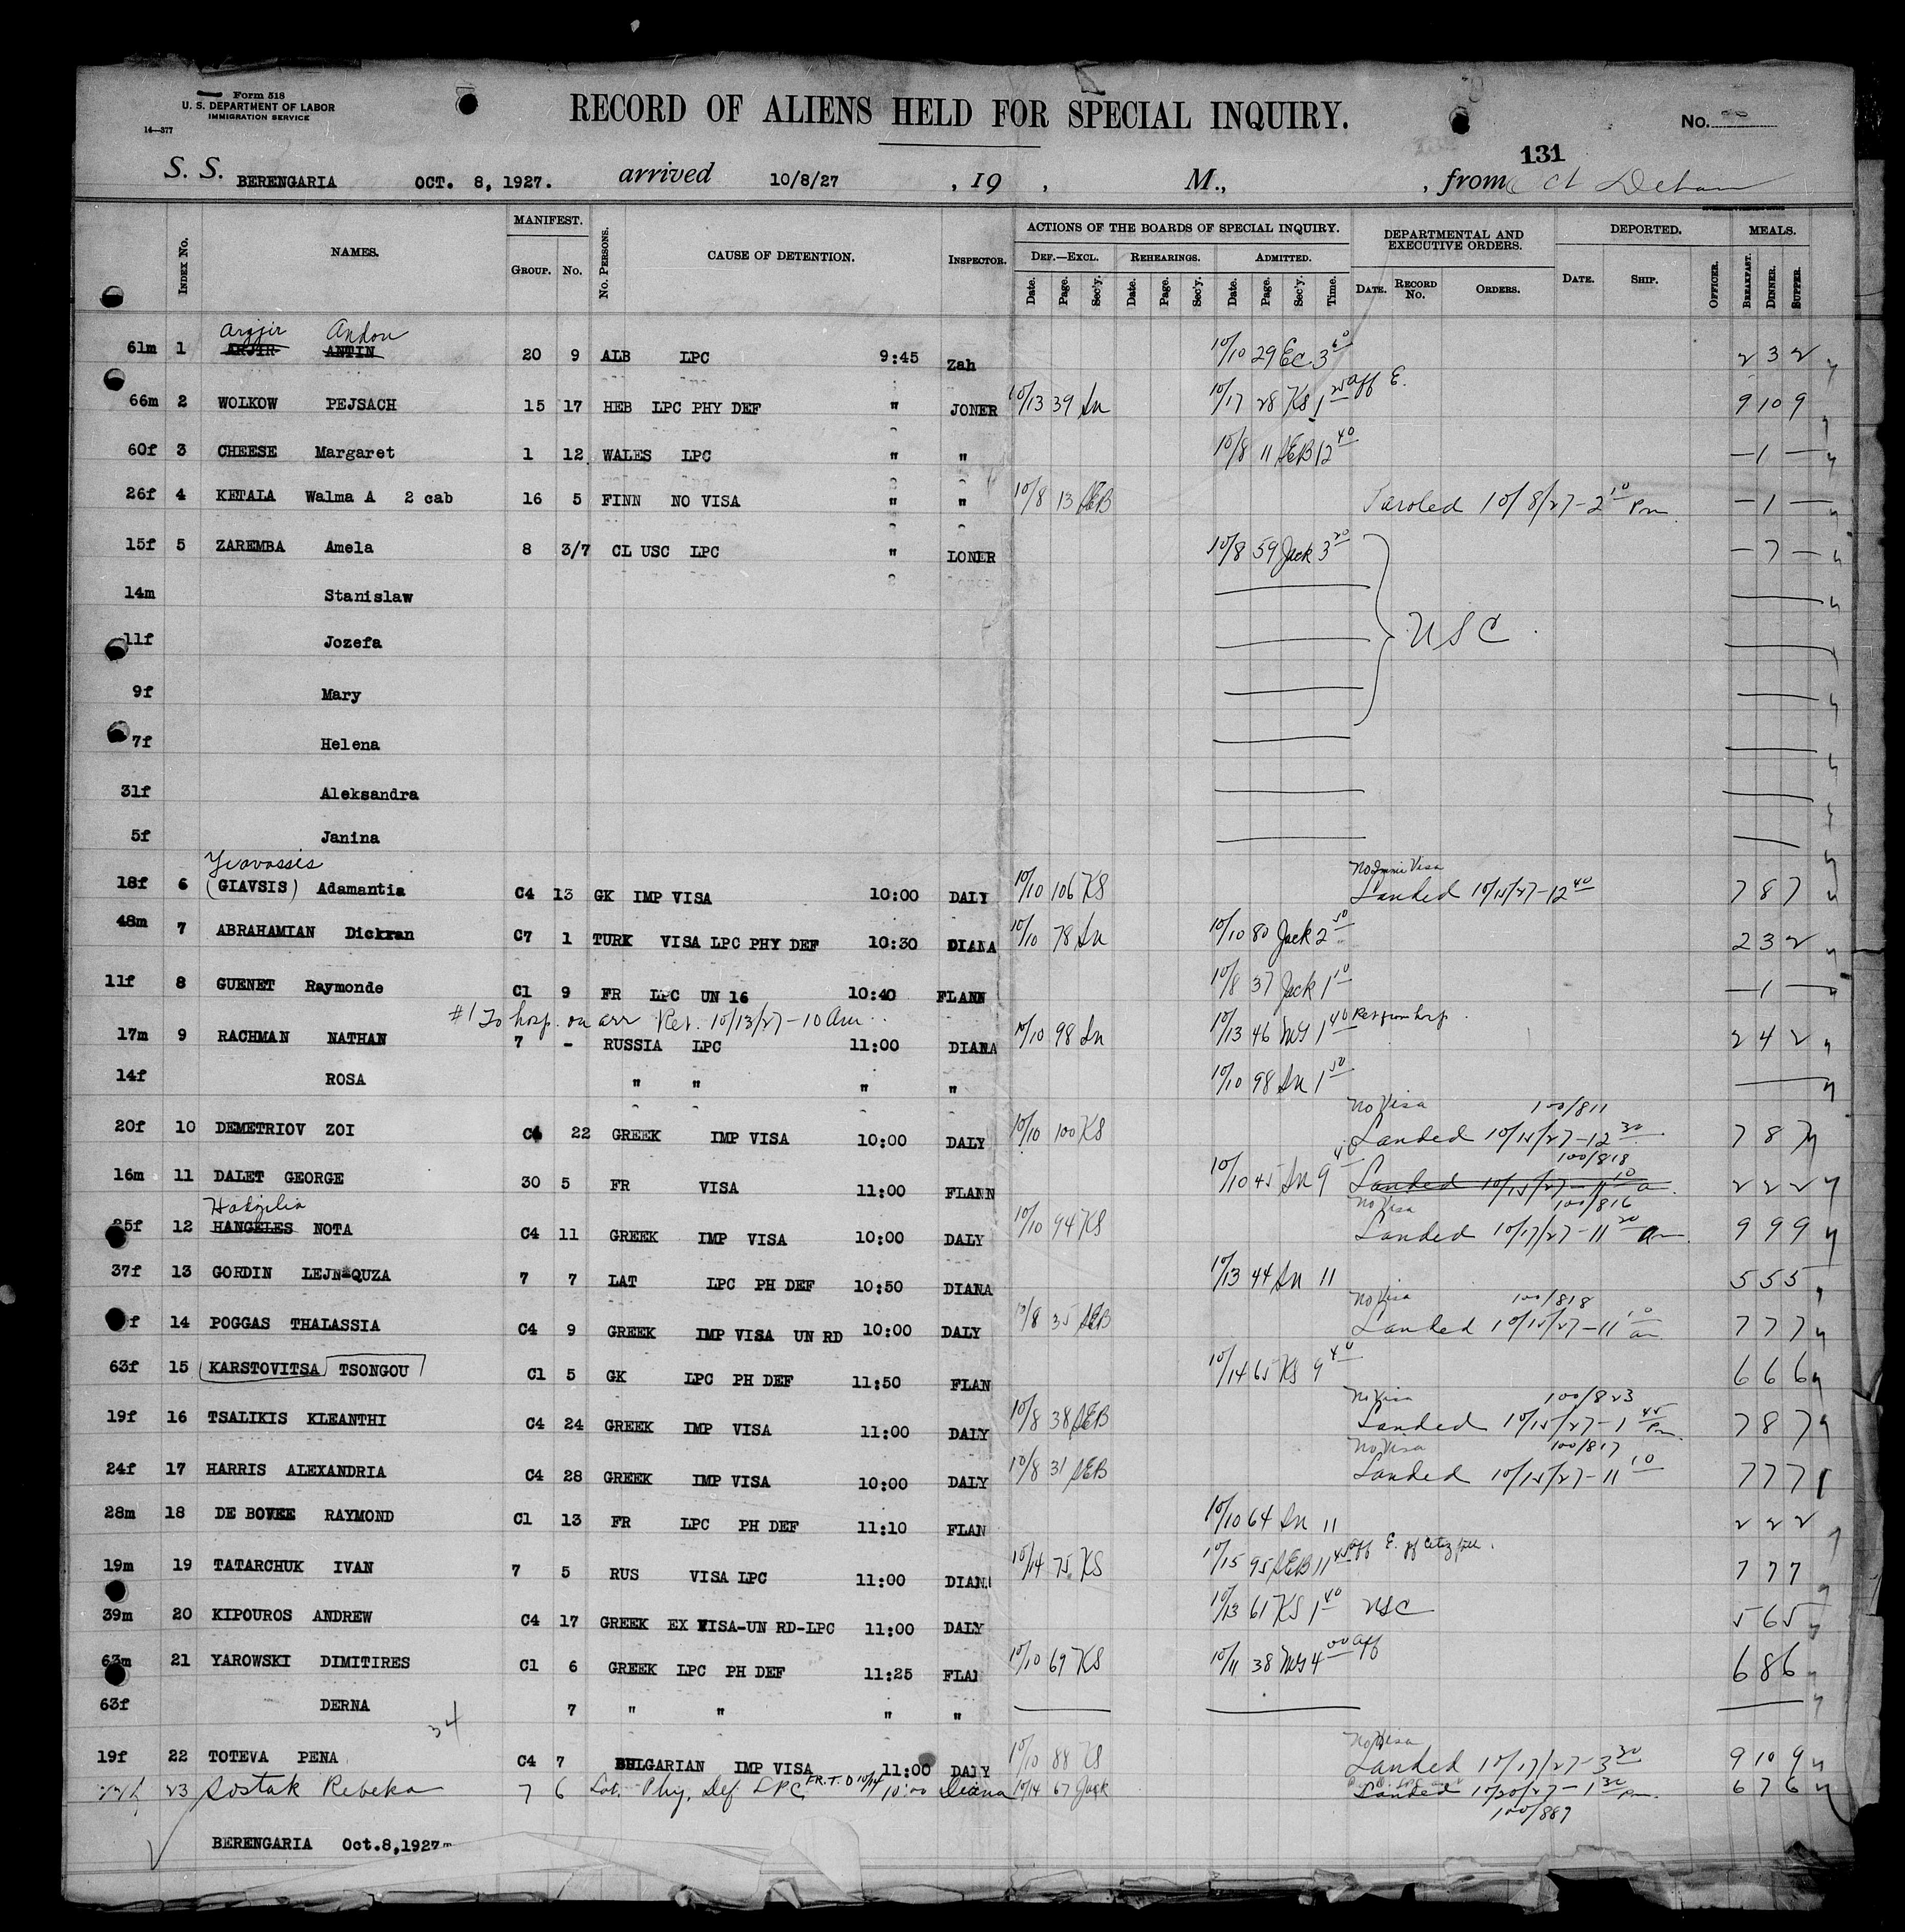 Form 518
U. S. DEPARTMENT OF LABOR
IMMIGRATION SERVICE
14—377
RECORD OF ALIENS HELD FOR SPECIAL INQUIRY.
No.
131
S. S. BERENGARIA OCT. 8, 1927. arrived 10/8/27 , 19 , M., , from
INDEX No. NAMES. MANIFEST. GROUP. No. No. PERSONS. CAUSE OF DETENTION. INSPECTOR. ACTIONS OF THE BOARDS OF SPECIAL INQUIRY. DEF.—EXCL. Date. Page. Sec'y. REHEARINGS. Date. Page. Sec'y. ADMITTED. Date. Page. Sec'y. Time. DEPARTMENTAL AND EXECUTIVE ORDERS. DATE. RECORD No. ORDERS. DEPORTED. DATE. SHIP. OFFICER. MEALS. BREAKFAST. DINNER. SUPPER.
Argjir Andon
61m 1 ARJIR ANTIN 20 9 ALB LPC 9:45 Zah 10/10 29 EC 3 2 3 2
66m 2 WOLKOW PEJSACH 15 17 HEB LPC PHY DEF " JONER 10/13 39 Sn 10/17 28 KS 1 25 aff E. 9 10 9
60f 3 CHEESE Margaret 1 12 WALES LPC " " 10/8 11 SEB 12 40 — 1 —
26f 4 KETALA Walma A 2 cab 16 5 FINN NO VISA " " 10/8 13 SEB Paroled 10/8/27 - 2 10 Pm — 1 —
15f 5 ZAREMBA Amela 8 3/7 CL USC LPC " LONER 10/8 59 Jack 3 20 — 7 —
14m Stanislaw
11f Jozefa USC
9f Mary
7f Helena
31f Aleksandra
5f Janina
Yiavassis No Immi Visa
18f 6 (GIAVSIS) Adamantia C4 13 GK IMP VISA 10:00 DALY 10/10 106 KS Landed 10/15/27 - 12 40 7 8 7
48m 7 ABRAHAMIAN Dickran C7 1 TURK VISA LPC PHY DEF 10:30 DIANA 10/10 78 Sn 10/10 80 Jack 2 50 2 3 2
11f 8 GUENET Raymonde C1 9 FR LPC UN 16 10:40 FLANN 10/8 37 Jack 1 10 — 1 —
#1 To hosp. on arr Ret. 10/13/27 - 10 Am
17m 9 RACHMAN NATHAN 7 - RUSSIA LPC 11:00 DIANA 10/10 98 Sn 10/13 46 MG 1 40 Ret from hosp. 2 4 2
14f ROSA " " " " 10/10 98 Sn 1 50
No Visa 100/811
20f 10 DEMETRIOV ZOI C4 22 GREEK IMP VISA 10:00 DALY 10/10 100 KS Landed 10/15/27 - 12 30 7 8 7
100/818
16m 11 DALET GEORGE 30 5 FR VISA 11:00 FLANN 10/10 45 Sn 9 40 Landed 10/15/27 - 11 10 a 2 2 2
Hadzilia No Visa 100/816
25f 12 HANGELES NOTA C4 11 GREEK IMP VISA 10:00 DALY 10/10 94 KS Landed 10/17/27 - 11 20 am. 9 9 9
37f 13 GORDIN LEJN QUZA 7 7 LAT LPC PH DEF 10:50 DIANA 10/13 44 Sn 11 5 5 5
No Visa 100/818
f 14 POGGAS THALASSIA C4 9 GREEK IMP VISA UN RD 10:00 DALY 10/8 35 SEB Landed 10/15/27 - 11 10 am 7 7 7
63f 15 (KARSTOVITSA) TSONGOU C1 5 GK LPC PH DEF 11:50 FLAN 10/14 65 KS 9 40 6 6 6
No Visa 100/823
19f 16 TSALIKIS KLEANTHI C4 24 GREEK IMP VISA 11:00 DALY 10/8 38 SEB Landed 10/15/27 - 1 45 Pm. 7 8 7
No Visa 100/817
24f 17 HARRIS ALEXANDRIA C4 28 GREEK IMP VISA 10:00 DALY 10/8 31 SEB Landed 10/15/27 - 11 10 7 7 7
28m 18 DE BOVEE RAYMOND C1 13 FR LPC PH DEF 11:10 FLAN 10/10 64 Sn 11 2 2 2
19m 19 TATARCHUK IVAN 7 5 RUS VISA LPC 11:00 DIAN 10/14 75 KS 10/15 95 SEB 11 45 aff E. 7 7 7
39m 20 KIPOUROS ANDREW C4 17 GREEK EX VISA-UN RD-LPC 11:00 DALY 10/13 61 KS 1 40 USC 5 6 5
63m 21 YAROWSKI DIMITIRES C1 6 GREEK LPC PH DEF 11:25 FLAN 10/10 69 KS 10/11 38 MG 4 00 aff 6 8 6
63f DERNA 7 " " " "
34
No Visa
19f 22 TOTEVA PENA C4 7 BULGARIAN IMP VISA 11:00 DALY 10/10 88 KS Landed 10/17/27 - 3 30 9 10 9
23 Sostak Rebeka 7 6 Lat. Phy. Def LPC FR.T.D 10/14 10:00 Diana 10/14 67 Jack Landed 10/20/27 - 1 30 Pm. 6 7 6
100/889
BERENGARIA Oct.8,1927